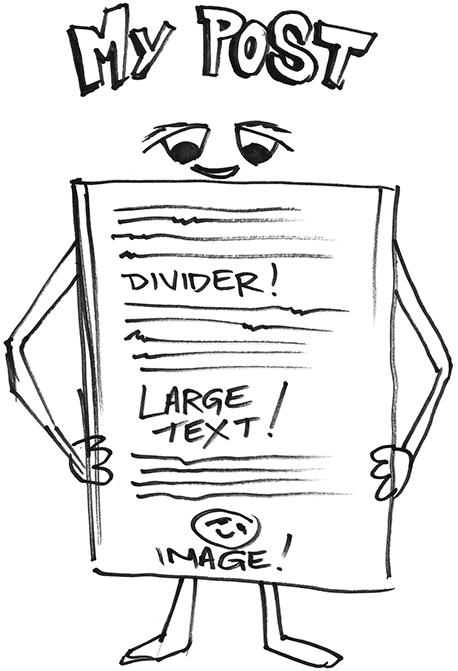 MY POST
DIVIDER!
LARGE
TEXT!
IMAGE!